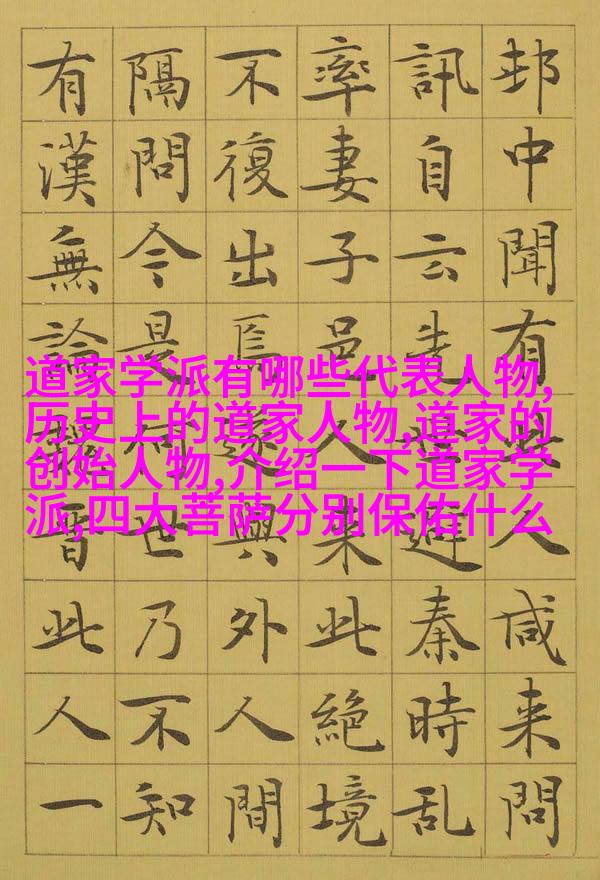 邨中聞有人咸来問
訊自云先世避秦時乱
率妻子邑人来此絶境
不復出焉遂與外人間
隔問今是何世乃不知
有漢無論魏晋此人一
道家学派有哪些代表人物,
历史上的道家人物,道家的
创始人物,介绍一下道家学
派,四大菩萨分别保佑什么